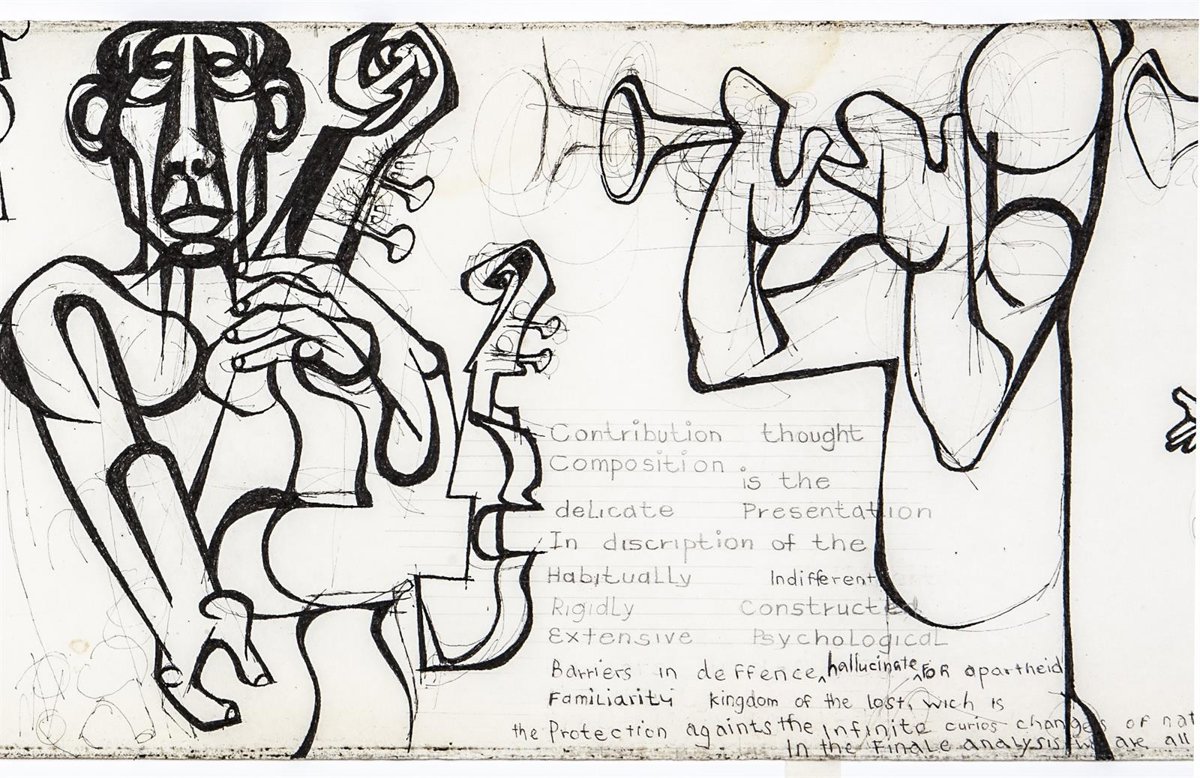 Contribution thought
Composition
is the
delicate Presentation
In discription of the
Habitually Indifferent
Rigidly Constructed
Extensive Psychological
Barriers in deffence, hallucinate, FOR apartheid
Familiarity kingdom of the lost, wich is
the Protection againts the Infinite curios changes of nat
In the Finale analysis we are all